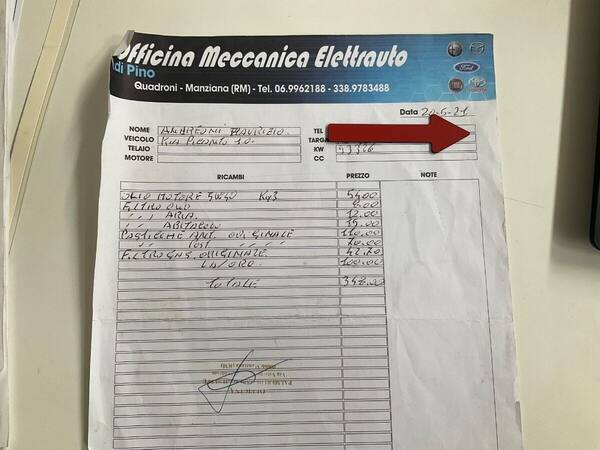 Officina Meccanica Elettrauto
di Pino
Quadroni - Manziana (RM) - Tel. 06.9962188 - 338.9783488
Ford
TOYOTA
Data 20-5-21
NOME ANDREONI MAURIZIO. TEL
VEICOLO KIA PICANTO 1.0. TARGA
TELAIO KW 53326
MOTORE CC
RICAMBI PREZZO NOTE
OLIO MOTORE 5W40 Kg3 54.00
FILTRO OLIO 8.00
" " ARIA. 12.00
" ABITACOLO 15.00
PASTICCHE ANT. ORIGINALE 110.00
" " POST " " " 70.00
FILTRO GAS ORIGINALE 42.70
LAVORO. 100.00
TOTALE 348.00